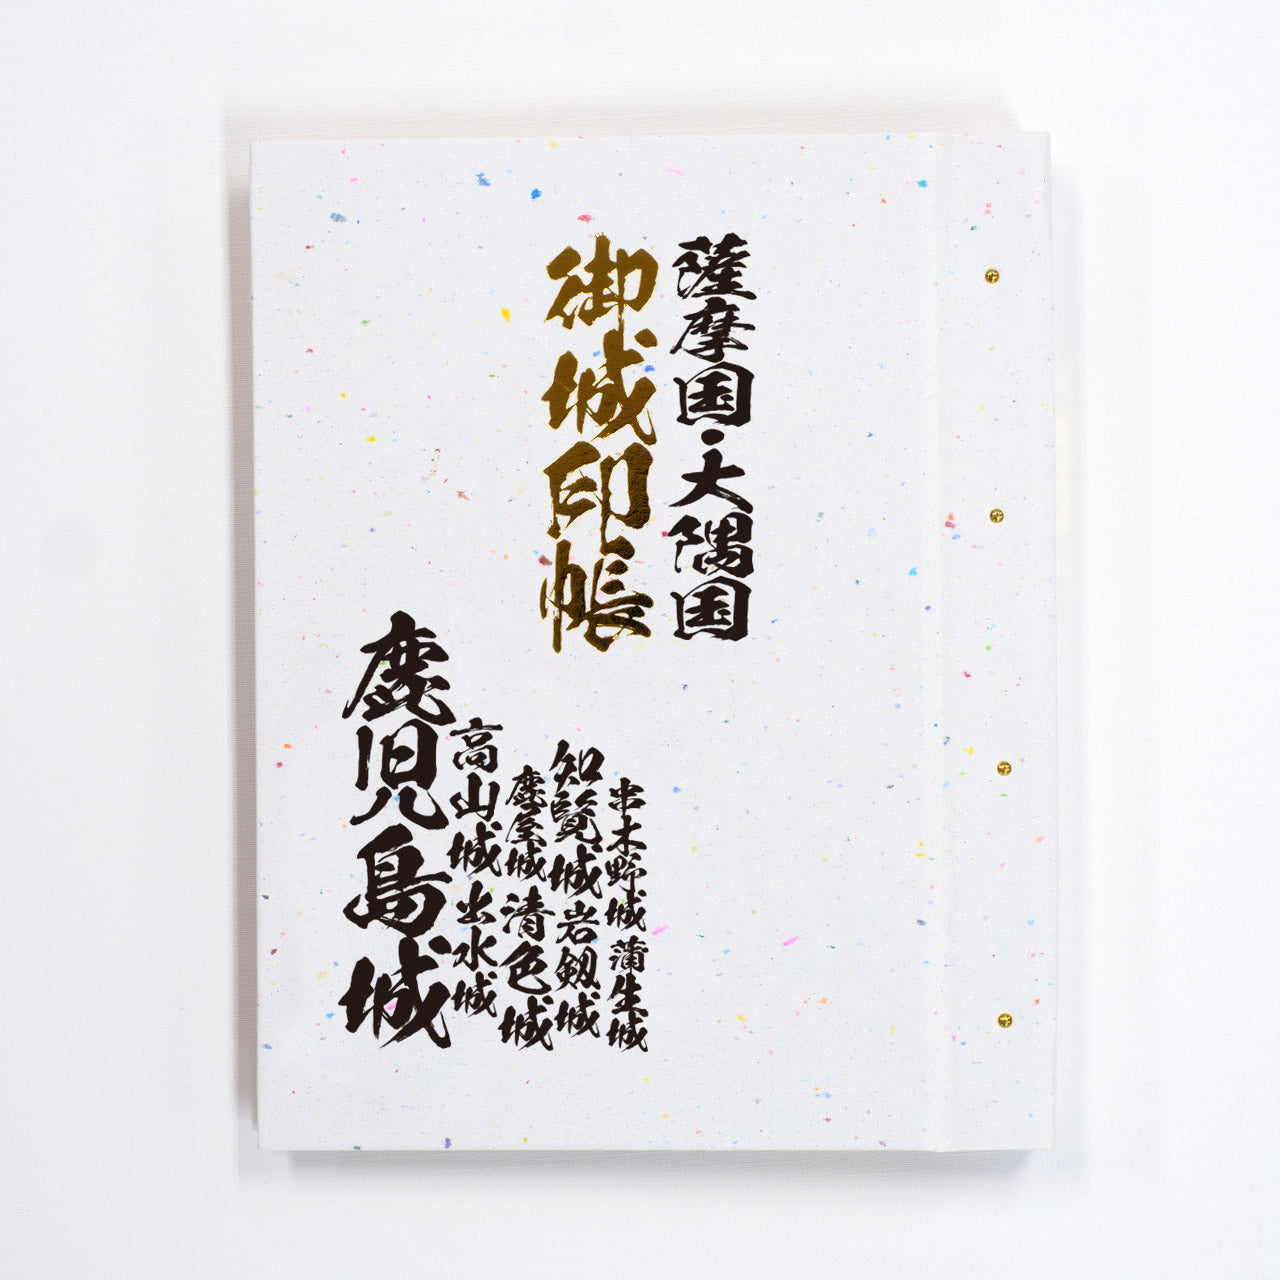 薩摩国・大隅国
御城印帳
串木野城 蒲生城
知覧城 岩剱城
鹿屋城 清色城
高山城 出水城
鹿児島城